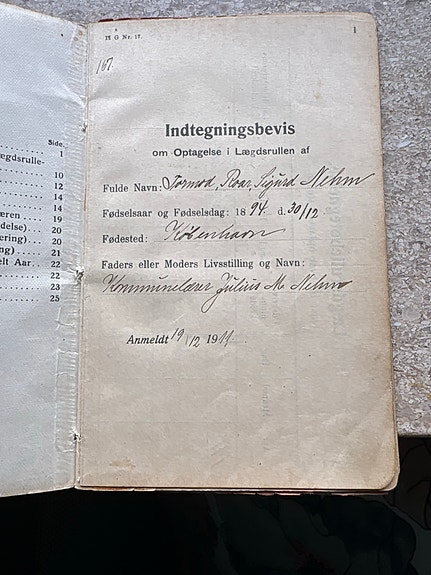 Side.
1
ægdsrulle-
10
12
14
14
æren 19
delse) ... 20
ering) ... 20
ng) ... 21
elt Aar ... 22
22
23
25
A
Pl G Nr. 17.
1
167.
Indtegningsbevis
om Optagelse i Lægdsrullen af
Fulde Navn: Tormod, Roar, Sigurd Nehm
Fødselsaar og Fødselsdag: 1894. d. 30/12
Fødested: København
Faders eller Moders Livsstilling og Navn:
Kommunelærer Julius M. Nehm
Anmeldt 19/12 1911.